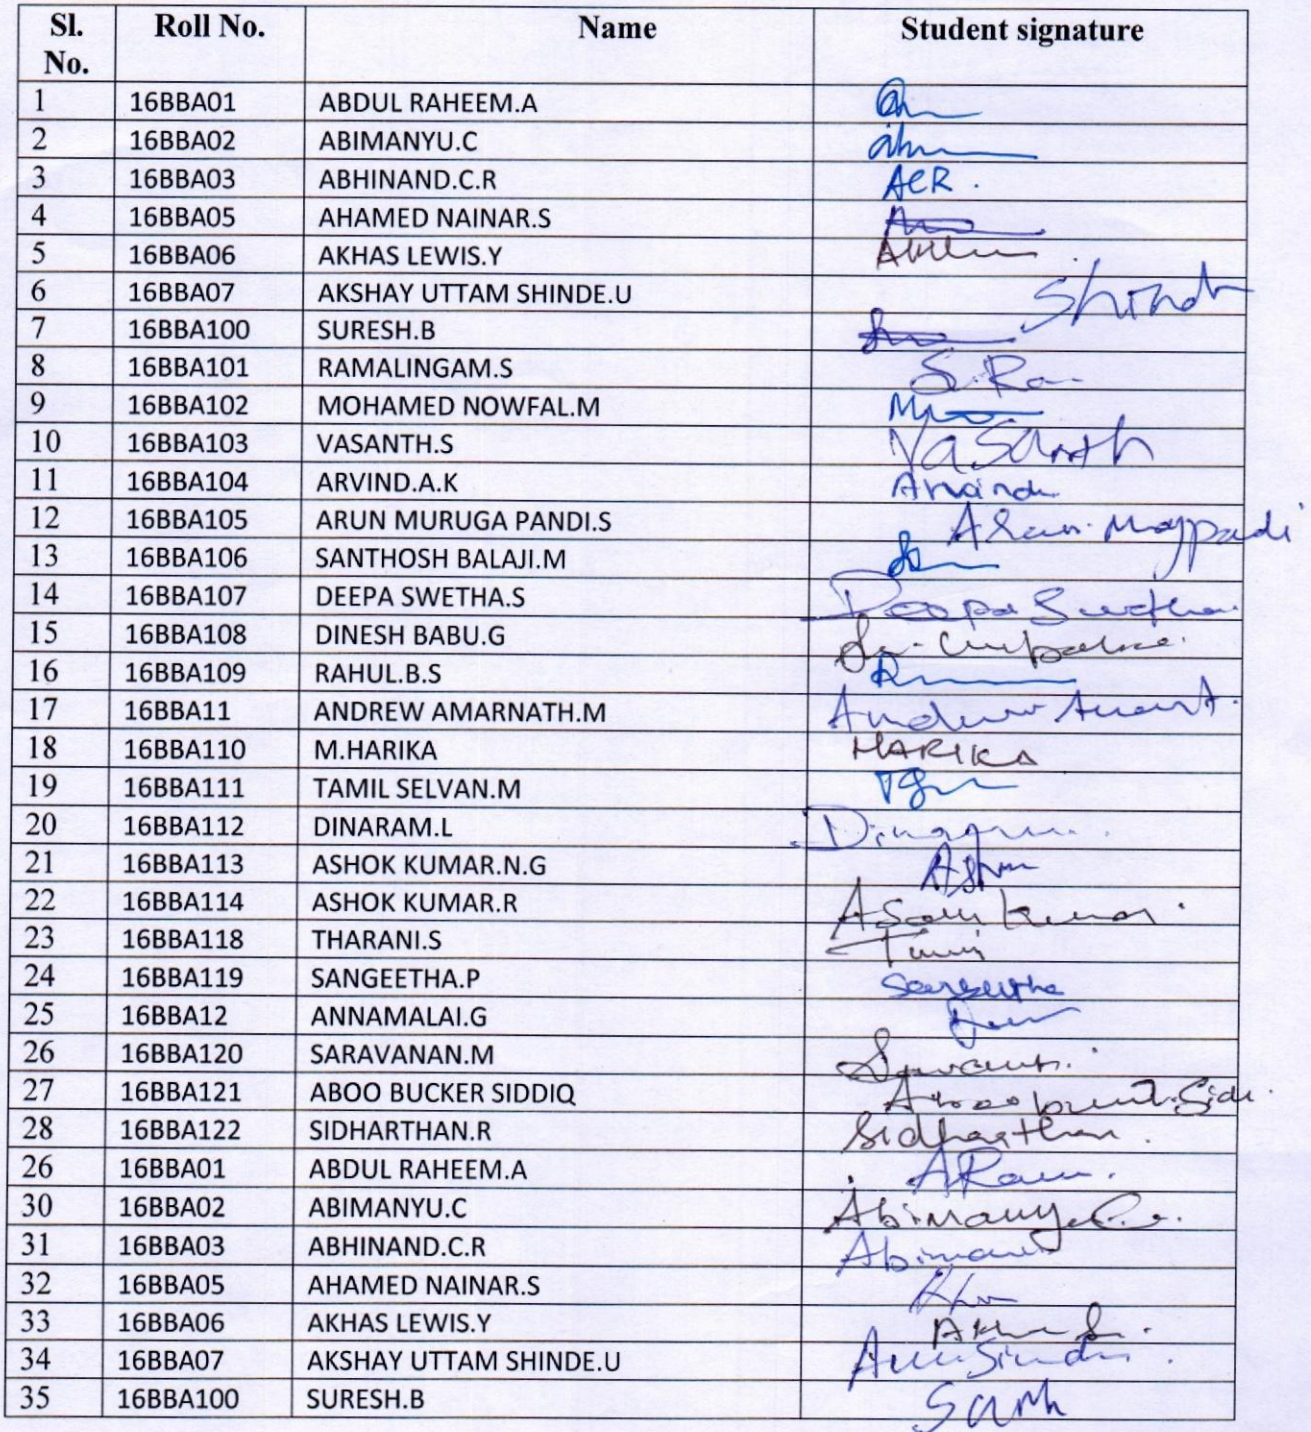 Sl. No. Roll No. Name Student signature
1 16BBA01 ABDUL RAHEEM.A
2 16BBA02 ABIMANYU.C
3 16BBA03 ABHINAND.C.R ACR.
4 16BBA05 AHAMED NAINAR.S
5 16BBA06 AKHAS LEWIS.Y
6 16BBA07 AKSHAY UTTAM SHINDE.U
7 16BBA100 SURESH.B
8 16BBA101 RAMALINGAM.S
9 16BBA102 MOHAMED NOWFAL.M
10 16BBA103 VASANTH.S Vasanth
11 16BBA104 ARVIND.A.K
12 16BBA105 ARUN MURUGA PANDI.S
13 16BBA106 SANTHOSH BALAJI.M
14 16BBA107 DEEPA SWETHA.S Deepa Swetha
15 16BBA108 DINESH BABU.G
16 16BBA109 RAHUL.B.S
17 16BBA11 ANDREW AMARNATH.M
18 16BBA110 M.HARIKA HARIKA
19 16BBA111 TAMIL SELVAN.M
20 16BBA112 DINARAM.L
21 16BBA113 ASHOK KUMAR.N.G
22 16BBA114 ASHOK KUMAR.R
23 16BBA118 THARANI.S
24 16BBA119 SANGEETHA.P
25 16BBA12 ANNAMALAI.G
26 16BBA120 SARAVANAN.M
27 16BBA121 ABOO BUCKER SIDDIQ
28 16BBA122 SIDHARTHAN.R Sidharthan.
26 16BBA01 ABDUL RAHEEM.A
30 16BBA02 ABIMANYU.C
31 16BBA03 ABHINAND.C.R
32 16BBA05 AHAMED NAINAR.S
33 16BBA06 AKHAS LEWIS.Y
34 16BBA07 AKSHAY UTTAM SHINDE.U
35 16BBA100 SURESH.B